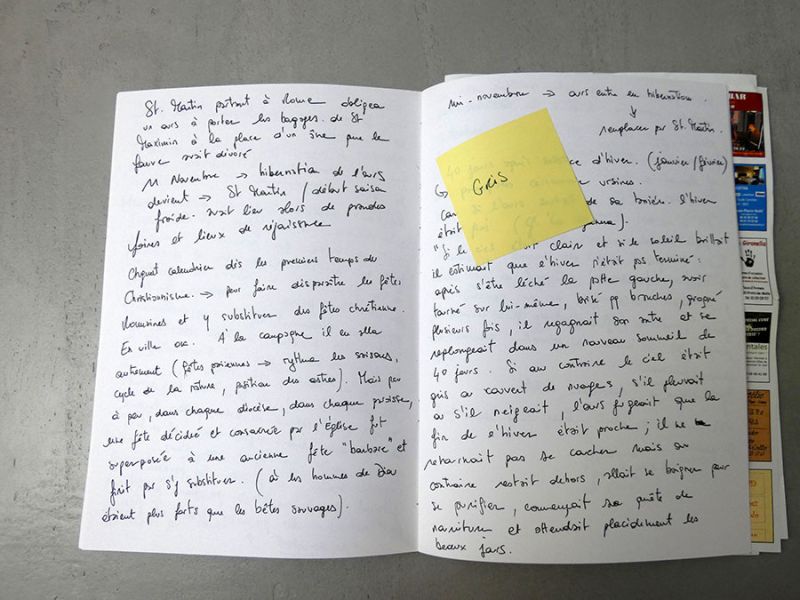 St. Martin partant à Rome obligea
un ours à porter les bagages de St
Maximin à la place d'un âne que le
fauve avait dévoré
11 Novembre → hibernation de l'ours
devient → St Martin / début saison
froide. avait lieu alors de grandes
foires et lieux de réjouissance
calendrier dès les premiers temps du
Christianisme. → pour faire disparaître les fêtes
Romaines et y substituer des fêtes chrétienne.
En ville ok. À la campagne il en alla
autrement (fêtes païennes → rythma les saisons,
cycle de la nature, position des astres). Mais peu
à peu, dans chaque diocèse, dans chaque paroisse,
une fête décidée et consacrée par l'Église fut
superposée à une ancienne fête "barbare" et
finit par s'y substituer. (où les hommes de Dieu
étaient plus forts que les bêtes sauvages).
mi-novembre → ours entre en hibernation.
↓
remplacer par St. Martin.
40 jours après d'hiver. (janvier/février)
ursines.
de sa tanière. l'hiver
était
Gris
"Si le ciel était clair et si le soleil brillait
il estimait que l'hiver n'était pas terminé:
après s'être léché la patte gauche, avoir
tourné sur lui-même, brisé qq branches, grogné
plusieurs fois, il regagnait son antre et se
replongeait dans un nouveau sommeil de
40 jours. Si au contraire le ciel était
gris ou couvert de nuages, s'il pleuvait
ou s'il neigeait, l'ours jugeait que la
fin de l'hiver était proche; il ne
retournait pas se cacher mais au
contraire restait dehors, allait se baigner pour
se purifier, commençait sa quête de
nourriture et attendait placidement les
beaux jours.